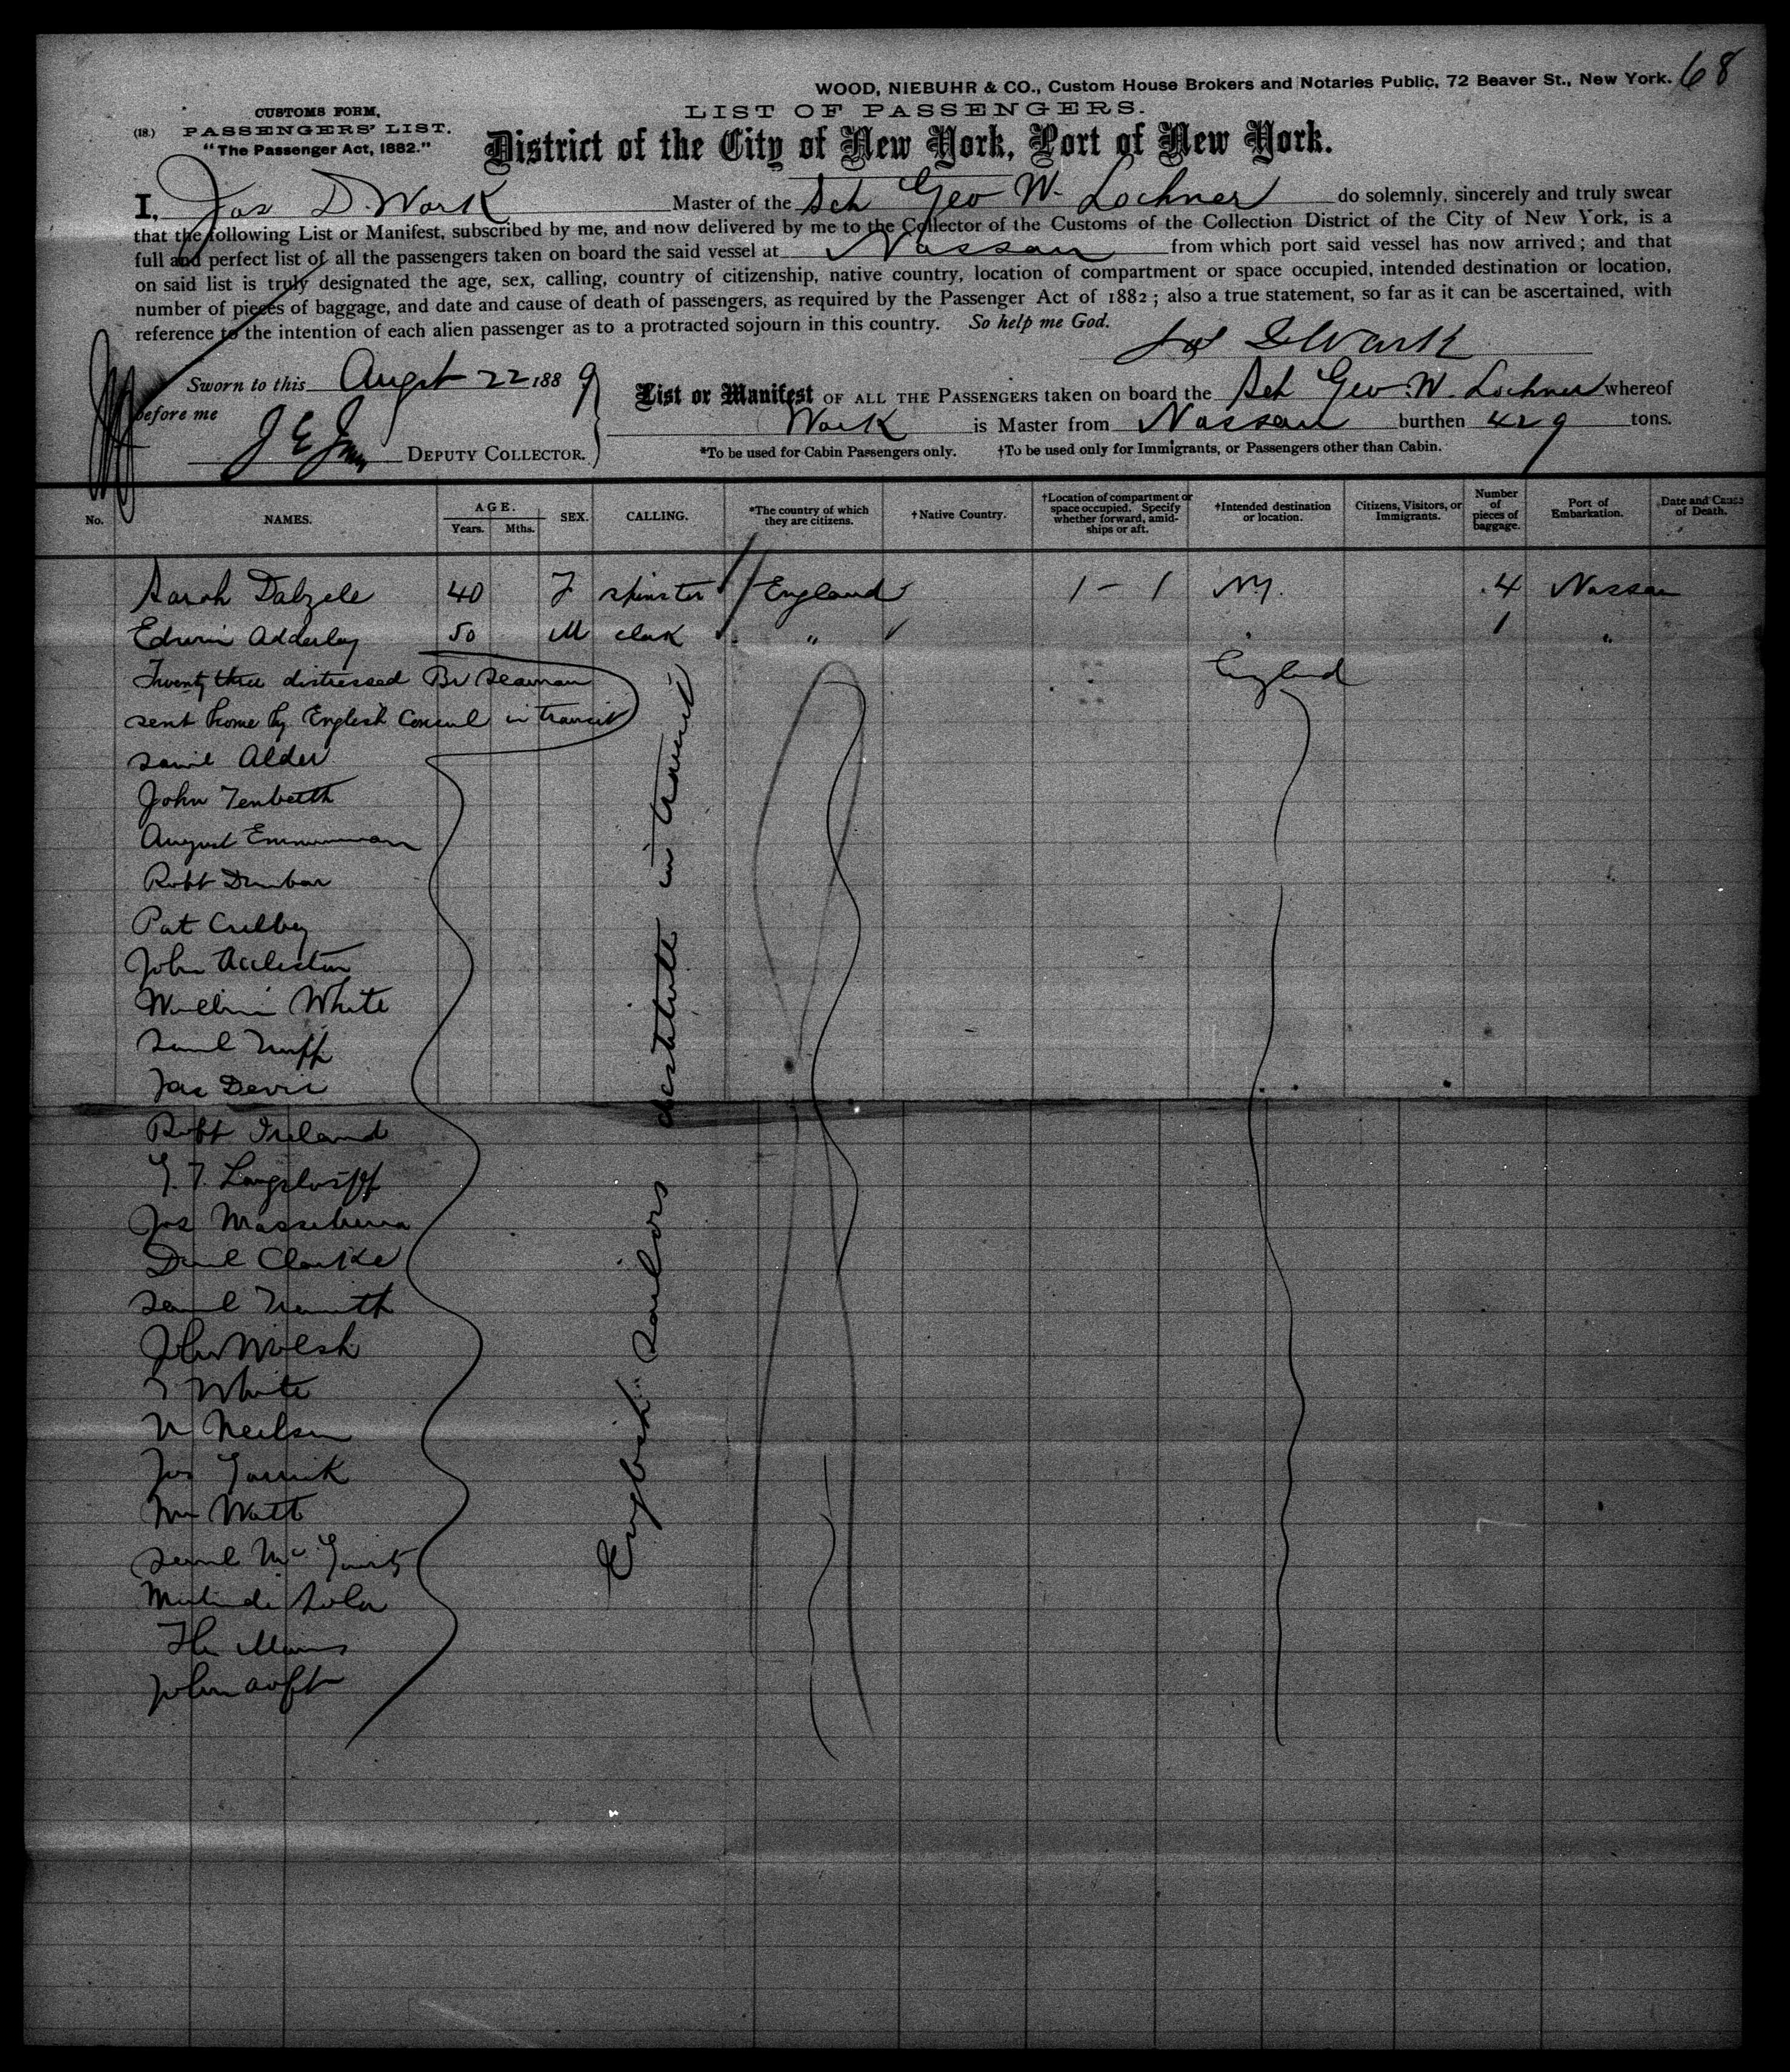 68
WOOD, NIEBUHR & CO., Custom House Brokers and Notaries Public, 72 Beaver St., New York.
LIST OF PASSENGERS.
CUSTOMS FORM,
(18.) PASSENGERS' LIST.
"The Passenger Act, 1882."
District of the City of New York, Port of New York.
I, Jas D. Wark Master of the Sch Geo W. Lochner do solemnly, sincerely and truly swear
that the following List or Manifest, subscribed by me, and now delivered by me to the Collector of the Customs of the Collection District of the City of New York, is a
full and perfect list of all the passengers taken on board the said vessel at Nassau from which port said vessel has now arrived; and that
on said list is truly designated the age, sex, calling, country of citizenship, native country, location of compartment or space occupied, intended destination or location,
number of pieces of baggage, and date and cause of death of passengers, as required by the Passenger Act of 1882; also a true statement, so far as it can be ascertained, with
reference to the intention of each alien passenger as to a protracted sojourn in this country. So help me God.
Jas D Wark
Sworn to this August 22 1889
before me
DEPUTY COLLECTOR.
List or Manifest OF ALL THE PASSENGERS taken on board the Sch Geo. W. Lochner whereof
Wark is Master from Nassau burthen 429 tons.
*To be used for Cabin Passengers only. †To be used only for Immigrants, or Passengers other than Cabin.
No. NAMES. AGE. Years. Mths. SEX. CALLING. *The country of which they are citizens. †Native Country. †Location of compartment or space occupied. Specify whether forward, amidships or aft. †Intended destination or location. Citizens, Visitors, or Immigrants. Number of pieces of baggage. Port of Embarkation. Date and Cause of Death.
Sarah Dalzele 40 F spinster England 1 - 1 NY. 4 Nassau
Edwin Adderley 50 M clerk " 1 "
Twenty three distressed Br Seaman England
sent home by English Consul in transit
Saml Alder
John Tenbeth
August
Robt Dunbar
Pat
John Accleston
William White
Saml
Jas Davis
Robt Ireland
Jos
Danl Clarke
Saml
John Walsh
White
Neilsen
Jos
Wm Watt
Saml Mc
John
English Sailors destitute in transit